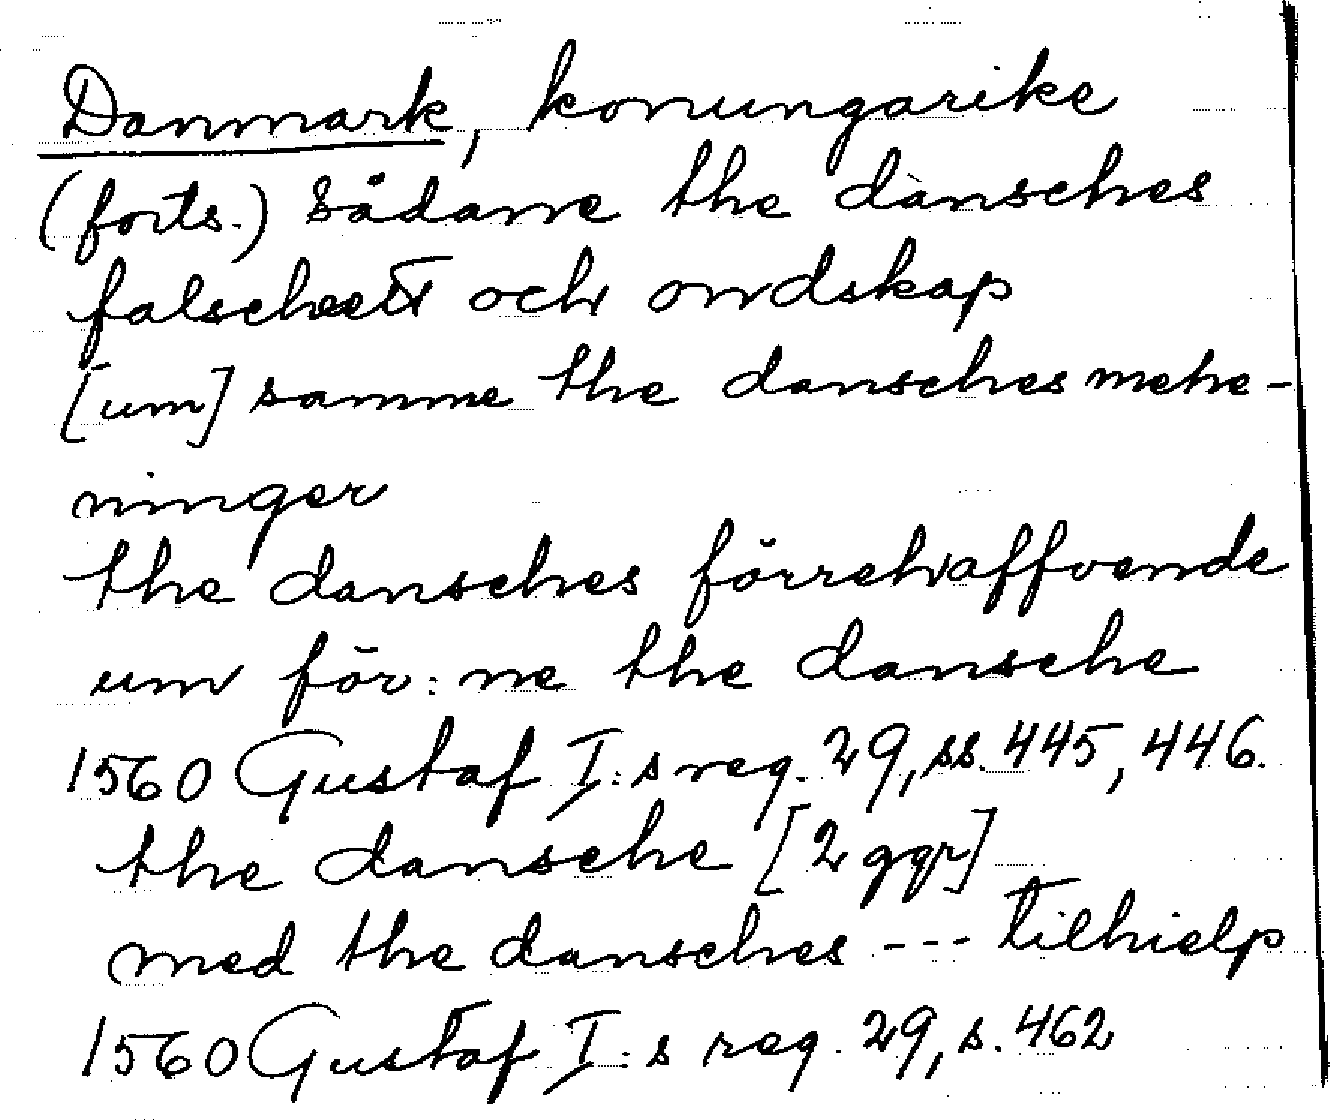 Danmark, konungarike
(forts.) sådane the dansches
falscheett och ondskap
[um] samme the dansches mehe-
ninger
the dansches förrehaffvende
um för:ne the dansche
1560 Gustaf I:s reg. 29, ss. 445, 446.
the dansche [2 ggr]
med the dansches --- tilhielp
1560 Gustaf I:s reg. 29, s. 462